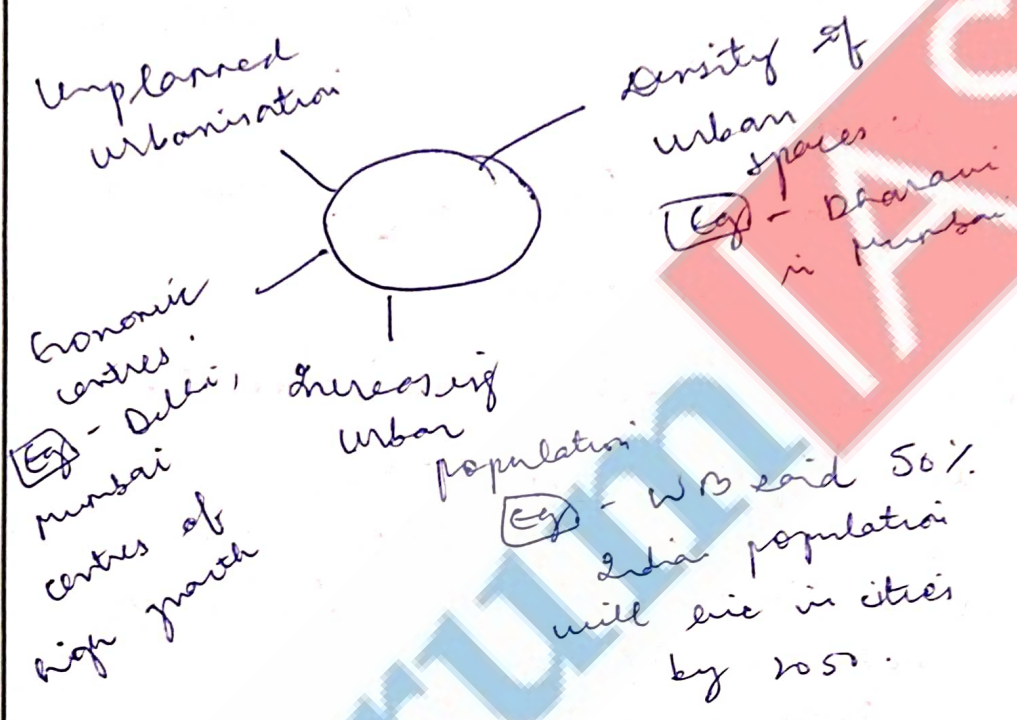 Unplanned
urbanisation
Density of
urban
spaces.
Eg - Dharavi
in Mumbai
Economic
centres.
Eg - Delhi,
Mumbai
centres of
high growth
Increasing
urban
population
Eg - WB said 50%
Indian population
will live in cities
by 2050.
rum IAS